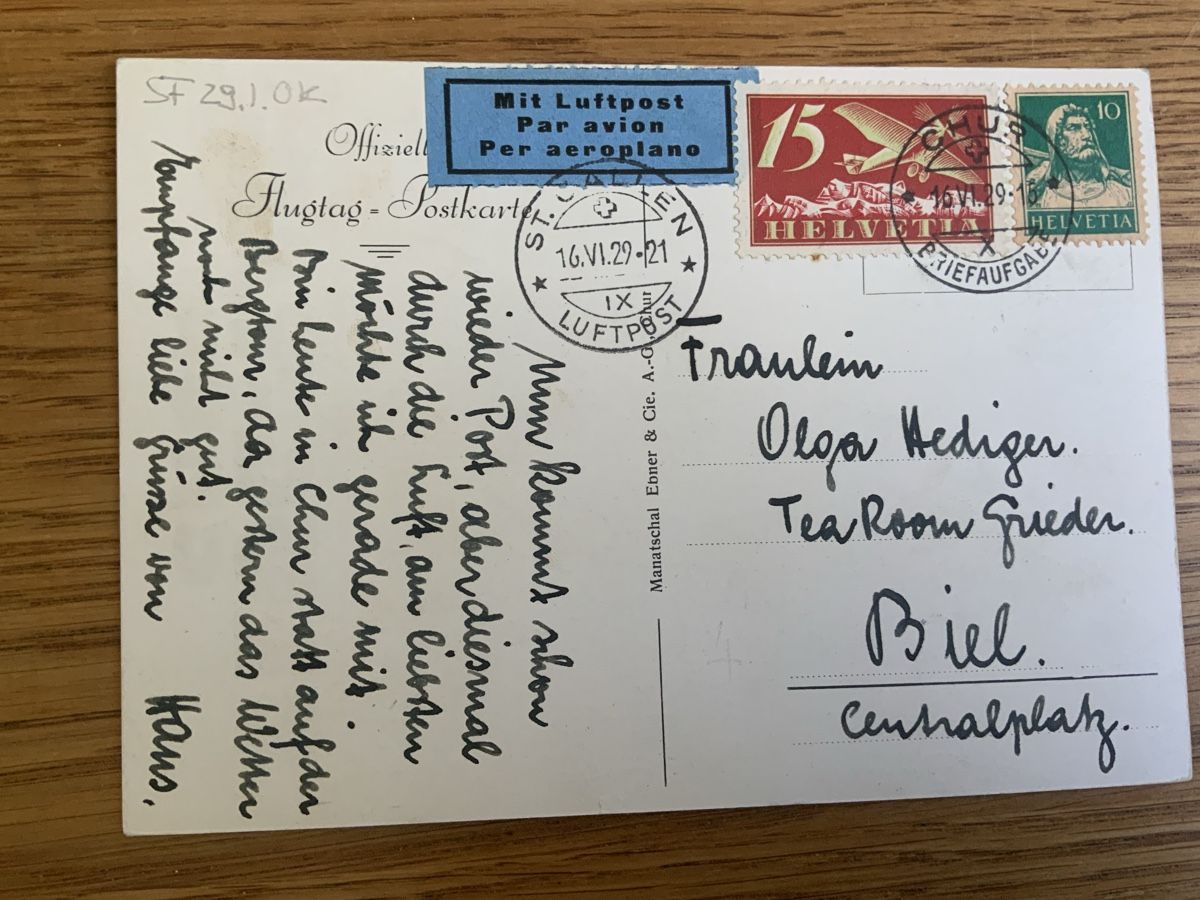 SF 29.1. OK
Offiziell
Flugtag = Postkarte
Mit Luftpost
Par avion
Per aeroplano
15
HELVETIA
10
HELVETIA
CHUR 1
16.VI.29-
BRIEFAUFGABE
ST. GALLEN
16.VI.29-21
IX
LUFTPOST
Nun kommt schon
wieder Post, aber diesmal
durch die Luft, am liebsten
Möchte ich gerade mit.
Bin heute in Chur statt auf der
Bergtour, da gestern das Wetter
noch nicht gut.
Empfange liebe Grüsse von Hans.
Manatschal Ebner & Cie. A.-G., Chur
Fräulein
Olga Hediger.
Tea Room Grieder.
Biel.
Centralplatz.
4